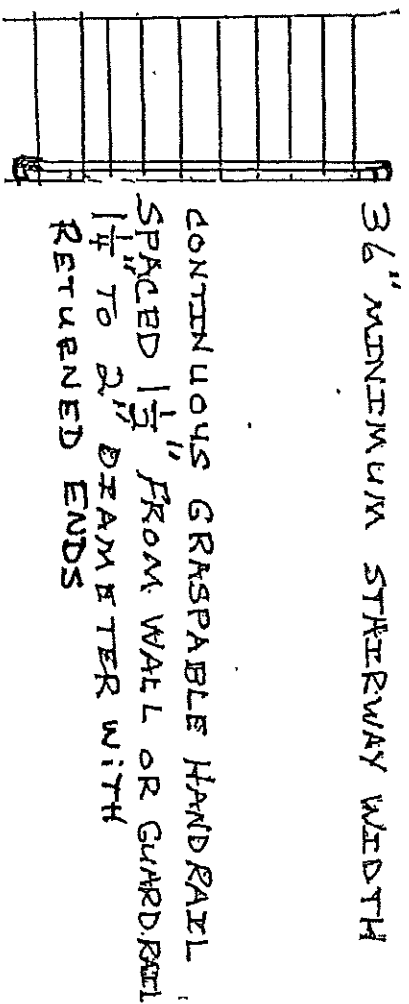 36" MINIMUM STAIRWAY WIDTH
CONTINUOUS GRASPABLE HANDRAIL
SPACED 1 1/2" FROM WALL OR GUARDRAIL
1 1/4" TO 2" DIAMETER WITH
RETURNED ENDS